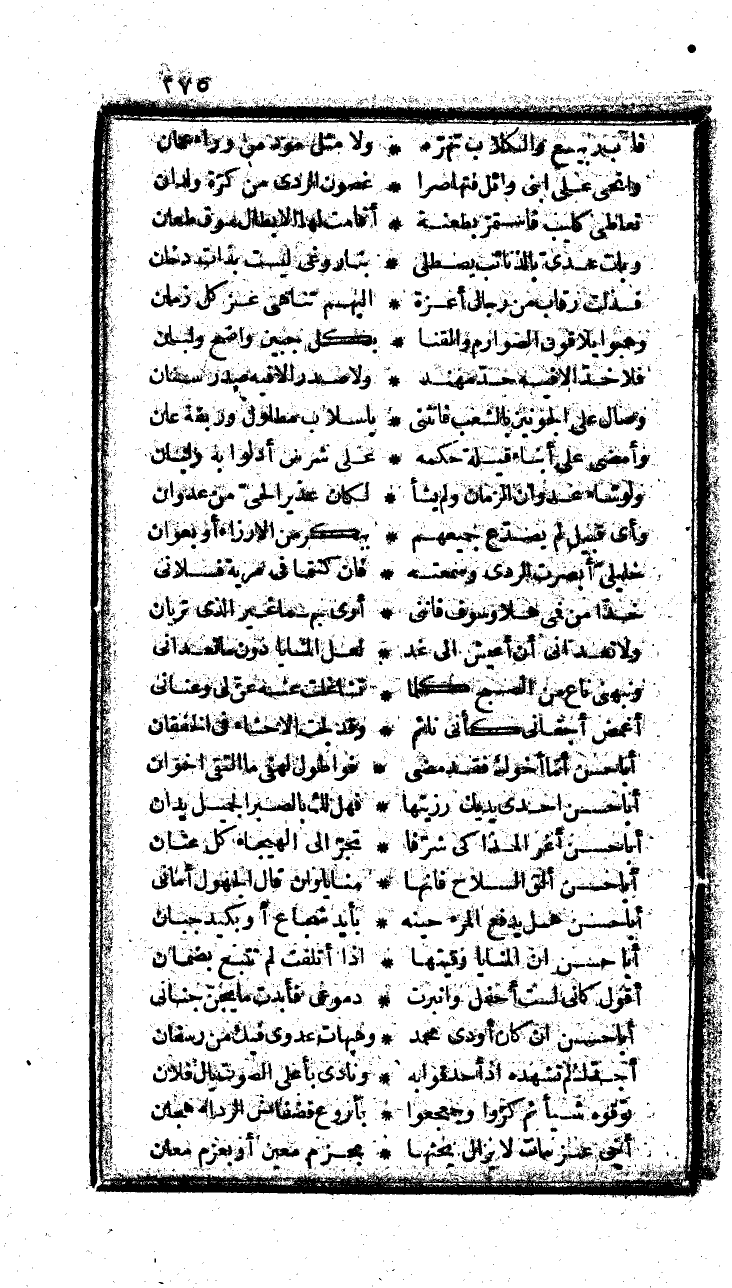 ٢٧٥
ولا مثل مود من وراء عمان
وانحى على ابنى وائل فتهاصرا * غصون الردى من كزة ولدان
تعاطى كليب فاستمرّ بطعنة * أقامت لها الابطال سوق طعان
وبات عدىّ بالذنائب يصطلى * بنار وغى ليست بذات دخان
فذلت رقاب من رجال أعزة * اليهم تناهى عز كل زمان
وهبوا يلاقون الصوارم والقنا * بكل جبين واضح ولبان
فلا خدّ الا فيه حدّ مهند * ولا صدر الا فيه صدر سنان
وصال على الجونين بالشعب فانثنى * باسلاب مطلول وربقة عان
وأمضى على أبناء قيلة حكمه * على شرس أدلوا به وليان
ولو شاء عدوان الزمان ولم يشأ * لكان عذير الحىّ من عدوان
وأى قبيل لم يصدّع جميعهم * ببكر من الارزاء أو بعوان
خليلىّ أبصرت الردى وسمعته * فان كنتما فى مرية فسلانى
خذا من فمى هلا وسوف فاننى * أرى بهما غير الذى تريان
ولا تعدانى أن أعيش الى غد * لعل المنايا دون ما تعدانى
ونبهنى ناع من الصبح كلما * تشاغلت عنه عنّ لى وعنانى
أغمض أجفانى كأنى نائم * وقد لجت الاحشاء فى الخفقان
أبا حسن أمّا أخوك فقد مضى * فوا طول لهفى ما التقى اخوان
أبا حسن احدى يديك رزيتها * فهل لك بالصبر الجميل يدان
أبا حسن أغر المذاكى شزّفا * تجرّ الى الهيجاء كل عنان
أبا حسن ألق السلاح فانها * منايا وان قال الجهول أمانى
أبا حسن هل يدفع المرء حينه * بأيد شجاع أو بكيد جبان
أبا حسن ان المنايا وقيتها * اذا أتلفت لم تتبع بضمان
أقول كأنى لست أحفل وانبرت * دموعى فأبدت ما يجنّ جنانى
أبا حسن ان كان أودى محمد * وهبات عدوى فيك من رسفان
أجدّك لم تشهده اذ أحدقوا به * ونادى بأعلى الصوت يال فلان
توقوه شيأ ثم كرّوا وجمعوا * بأروع فضفاض الرداء هجان
أخى عزمات لا يزال يحثها * بحزم معين أو بعزم معان